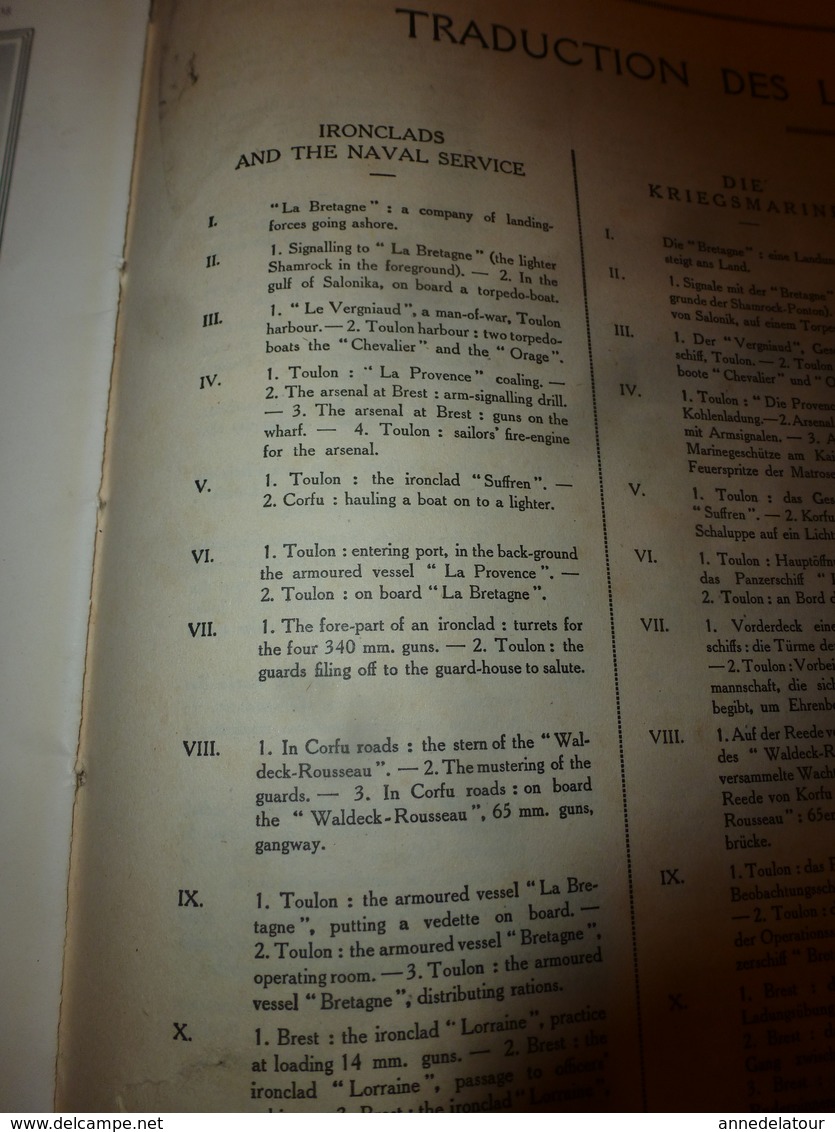 TRADUCTION DES L
IRONCLADS
AND THE NAVAL SERVICE
I. "La Bretagne" : a company of landing-
forces going ashore.
II. 1. Signalling to "La Bretagne" (the lighter
Shamrock in the foreground). — 2. In the
gulf of Salonika, on board a torpedo-boat.
III. 1. "Le Vergniaud", a man-of-war, Toulon
harbour. — 2. Toulon harbour : two torpedo-
boats the "Chevalier" and the "Orage".
IV. 1. Toulon : "La Provence" coaling. —
2. The arsenal at Brest : arm-signalling drill.
— 3. The arsenal at Brest : guns on the
wharf. — 4. Toulon : sailors' fire-engine
for the arsenal.
V. 1. Toulon : the ironclad "Suffren". —
2. Corfu : hauling a boat on to a lighter.
VI. 1. Toulon : entering port, in the back-ground
the armoured vessel "La Provence". —
2. Toulon : on board "La Bretagne".
VII. 1. The fore-part of an ironclad : turrets for
the four 340 mm. guns. — 2. Toulon : the
guards filing off to the guard-house to salute.
VIII. 1. In Corfu roads : the stern of the "Wal-
deck-Rousseau". — 2. The mustering of the
guards. — 3. In Corfu roads : on board
the "Waldeck-Rousseau", 65 mm. guns,
gangway.
IX. 1. Toulon : the armoured vessel "La Bre-
tagne", putting a vedette on board. —
2. Toulon : the armoured vessel "Bretagne",
operating room. — 3. Toulon : the armoured
vessel "Bretagne", distributing rations.
X. 1. Brest : the ironclad "Lorraine", practice
at loading 14 mm. guns. — 2. Brest : the
ironclad "Lorraine", passage to officers'
3. Brest : the ironclad "Lorraine",
DIE
KRIEGSMARIN
I. Die "Bretagne" : eine Landun
steigt ans Land.
II. 1. Signale mit der "Bretagne"
grunde der Shamrock-Ponton).
von Salonik, auf einem Torpe
III. 1. Der "Vergniaud", Ges
schiff, Toulon. — 2. Toulon
boote "Chevalier" und "O
IV. 1. Toulon : "Die Proven
Kohlenladung. — 2. Arsenal
mit Armsignalen. — 3. A
Marinegeschütze am Kai
Feuerspritze der Matrose
V. 1. Toulon : das Ges
"Suffren". — 2. Korfu
Schaluppe auf ein Licht
VI. 1. Toulon : Hauptöffn
das Panzerschiff "
2. Toulon : an Bord d
VII. 1. Vorderdeck eine
schiffs : die Türme de
— 2. Toulon : Vorbei
mannschaft, die sich
begibt, um Ehrenbe
VIII. 1. Auf der Reede v
des "Waldeck-R
versammelte Wach
Reede von Korfu
Rousseau" : 65er
brücke.
IX. 1. Toulon : das P
Beobachtungssch
— 2. Toulon :
der Operations
zerschiff "Bret
X. 1. Brest : d
Ladungsübung
2. Brest :
Gang zwisc
3. Brest :
annedelatour